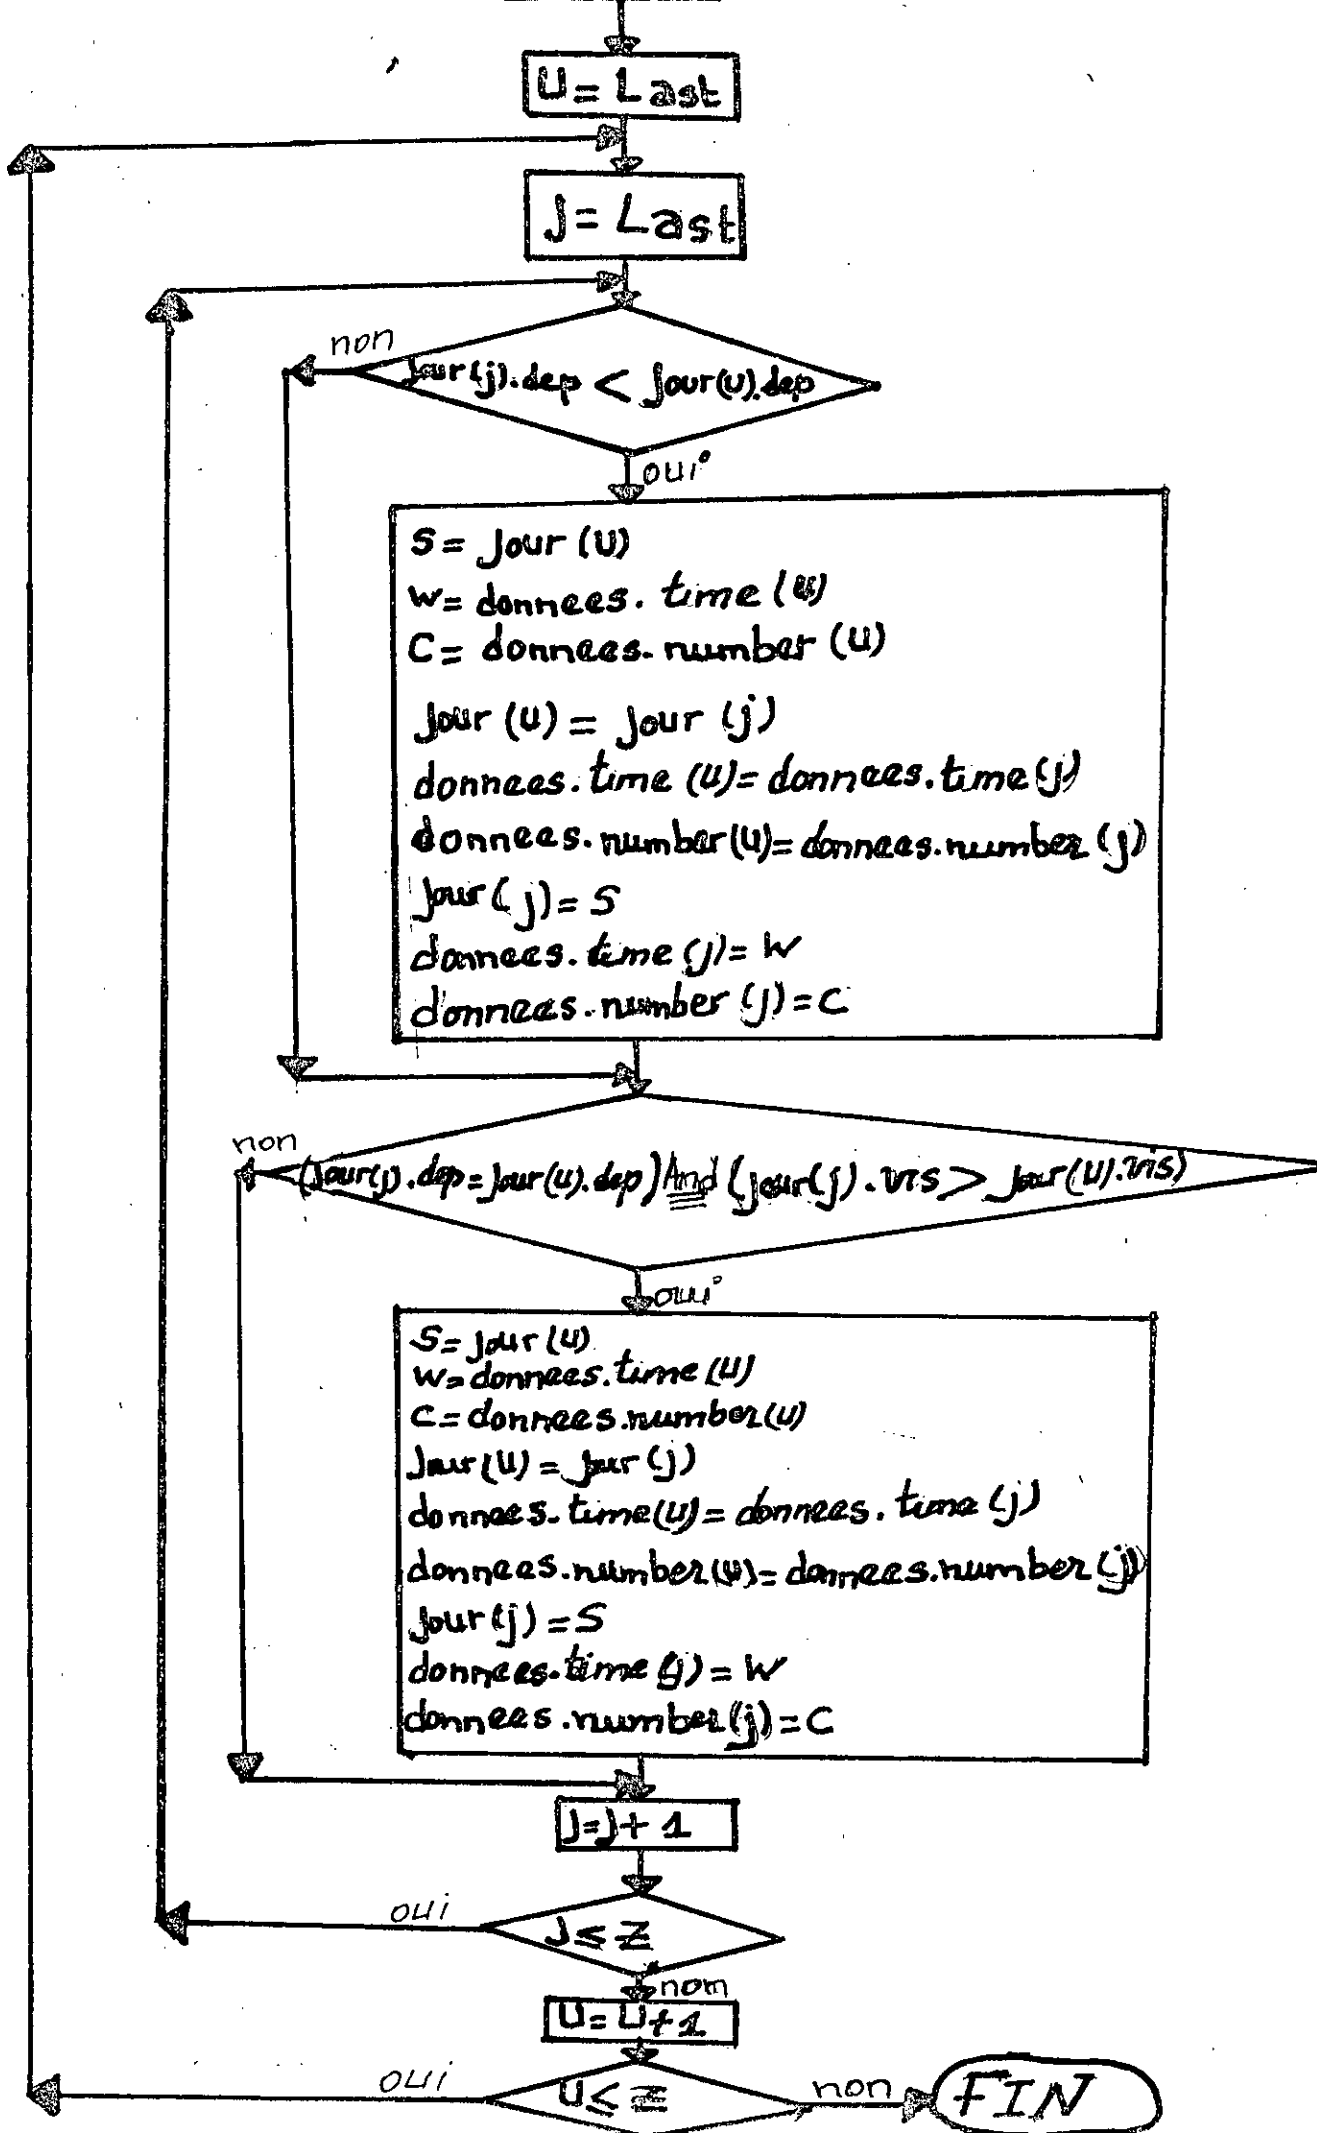 U = Last
j = Last
non
jour(j).dep < jour(u).dep
oui
S = jour (U)
W = donnees. time (u)
C = donnees. number (U)
jour (U) = jour (j)
donnees. time (U) = donnees. time (j)
donnees. number (U) = donnees. number (j)
jour (j) = S
donnees. time (j) = W
donnees. number (j) = C
non
(jour(j).dep = jour(u).dep) And (jour(j).vis > jour(U).vis)
oui
S = jour (U)
W = donnees. time (U)
C = donnees. number (U)
jour (U) = jour (j)
donnees. time (U) = donnees. time (j)
donnees. number (U) = donnees. number (j)
jour (j) = S
donnees. time (j) = W
donnees. number (j) = C
j = j + 1
oui
J ≤ Z
non
U = U + 1
oui
U ≤ Z
non
FIN